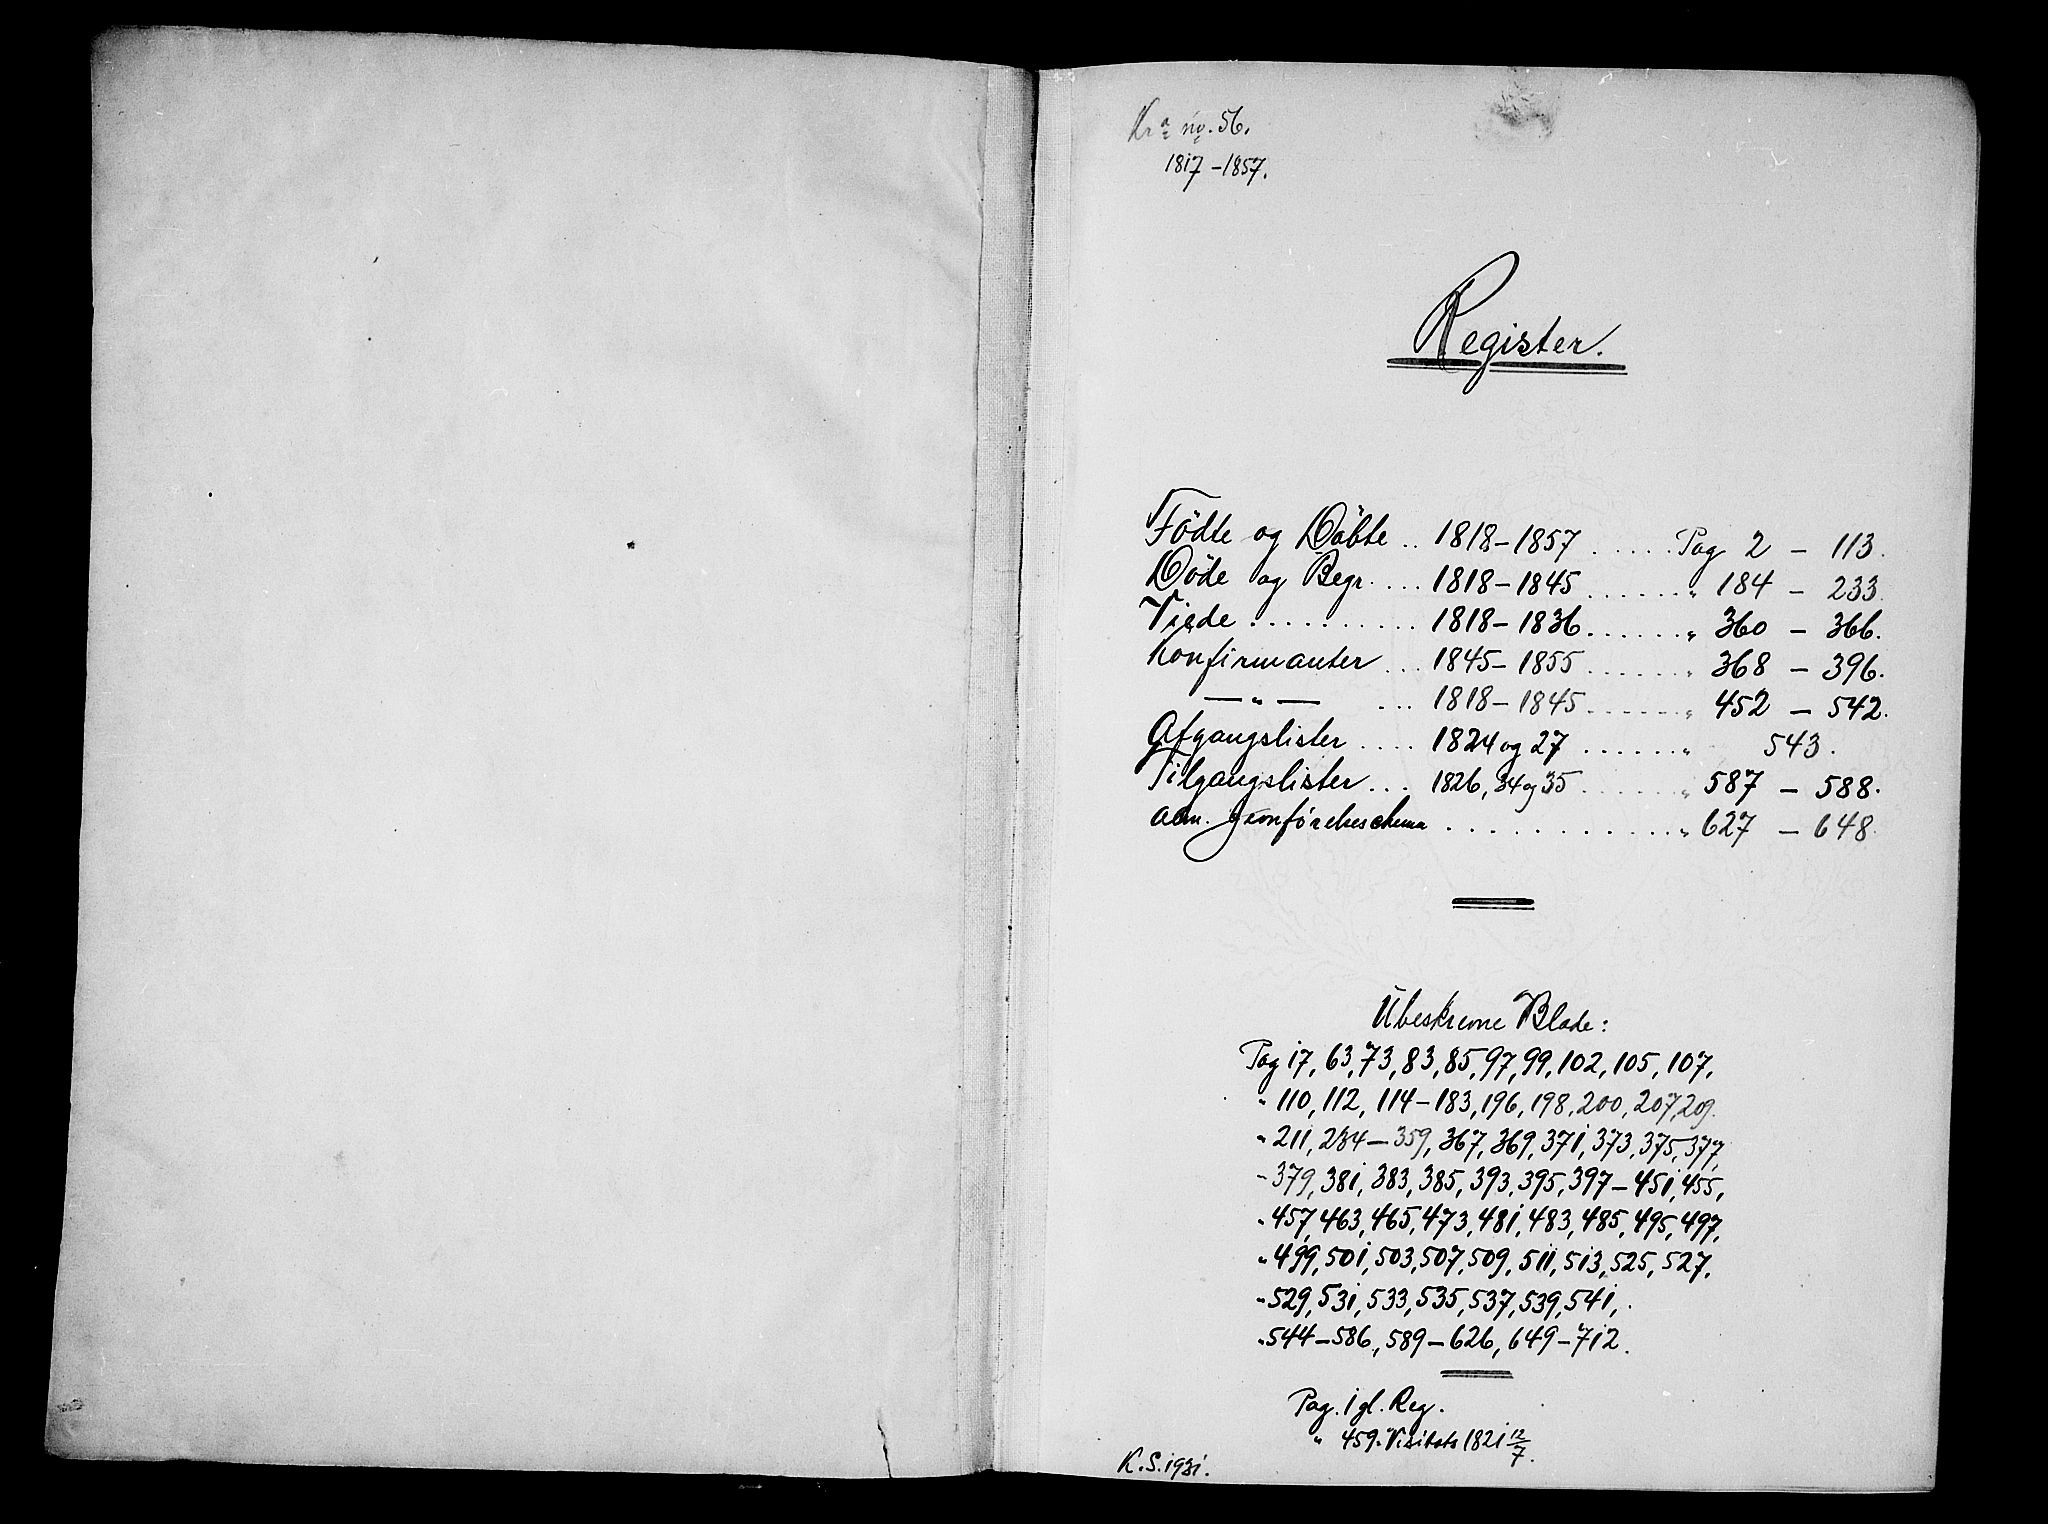 Kra no. 56.
1817-1857.
Register.
Födte og Döbte .. 1818-1857 ..... Pag 2 - 113.
Döde og Begr. ... 1818-1845 ...... " 184 - 233.
Viede .......... 1818-1836 ...... " 360 - 366.
Konfirmanter ... 1845-1855 ...... " 368 - 396.
— " — ... 1818-1845 ...... " 452 - 542.
Afgangslister .... 1824 og 27 ...... " 543.
Tilgangslister ... 1826, 34 og 35 ...... " 587 - 588.
Alm. Jevnförelseschema ............ " 627 - 648.
Ubeskrevne Blade:
Pag 17, 63, 73, 83, 85, 97, 99, 102, 105, 107,
" 110, 112, 114-183, 196, 198, 200, 207, 209.
" 211, 234-359, 367, 369, 371, 373, 375, 377,
" 379, 381, 383, 385, 393, 395, 397-451, 455,
" 457, 463, 465, 473, 481, 483, 485, 495, 497,
" 499, 501, 503, 507, 509, 511, 513, 525, 527,
" 529, 531, 533, 535, 537, 539, 541,
" 544-586, 589-626, 649-712.
Pag. 1 gl. Reg.
" 459. Visitats 1821 12/7.
K.S. 1931.